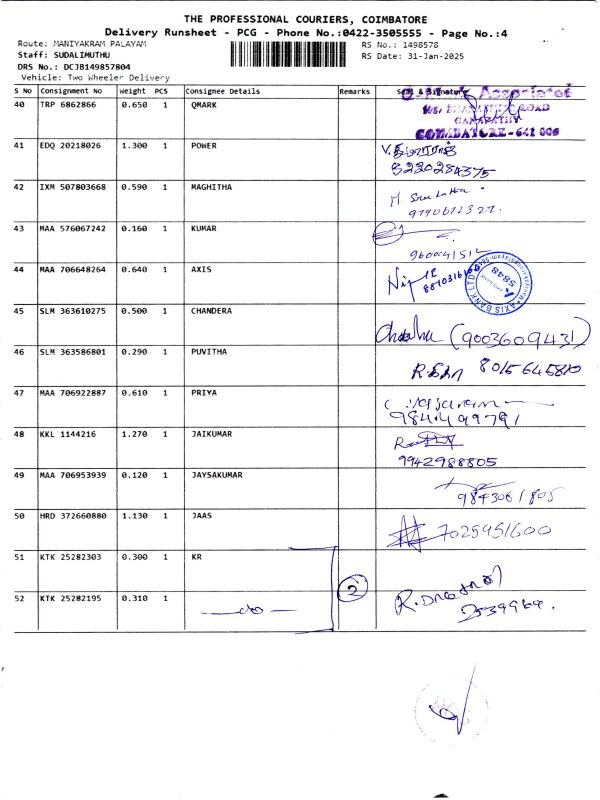 THE PROFESSIONAL COURIERS, COIMBATORE
Delivery Runsheet - PCG - Phone No.:0422-3505555 - Page No.:4
Route: MANIYAKRAM PALAYAM
RS No.: 1498578
Staff: SUDALIMUTHU
RS Date: 31-Jan-2025
DRS No.: DCJB149857804
Vehicle: Two Wheeler Delivery
S No Consignment No Weight PCS Consignee Details Remarks Seal & Signature
40 TRP 6862866 0.650 1 QMARK
ROAD
GANAPATHY
COIMBATORE - 641 006
41 EDQ 20218026 1.300 1 POWER
42 IXM 507803668 0.590 1 MAGHITHA
43 MAA 576067242 0.160 1 KUMAR
44 MAA 706648264 0.640 1 AXIS
AXIS BANK LTD
5848
45 SLM 363610275 0.500 1 CHANDERA
(9003609431)
46 SLM 363586801 0.290 1 PUVITHA
8015645810
47 MAA 706922887 0.610 1 PRIYA
48 KKL 1144216 1.270 1 JAIKUMAR
9942988805
49 MAA 706953939 0.120 1 JAYSAKUMAR
50 HRD 372660880 1.130 1 JAAS
7025951600
51 KTK 25282303 0.300 1 KR
2
52 KTK 25282195 0.310 1 —do—
2539969.